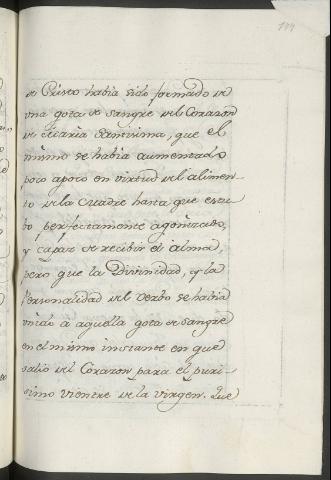 de Cristo había sido formado de
una gota de sangre del Corazon
de Maria Santisima, que el
mismo se habia aumentado
poco apoco en virtud del alimen-
to de la Madre hasta que estu-
bo perfectamente agonizado,
y capaz de recibir el alma,
pero que la Divinidad, y la
Personalidad del Verbo se habia
unido á aquella gota de sangre
en el mismo instante en que
salio del Corazon para el puri-
simo vientre de la Virgen. Que